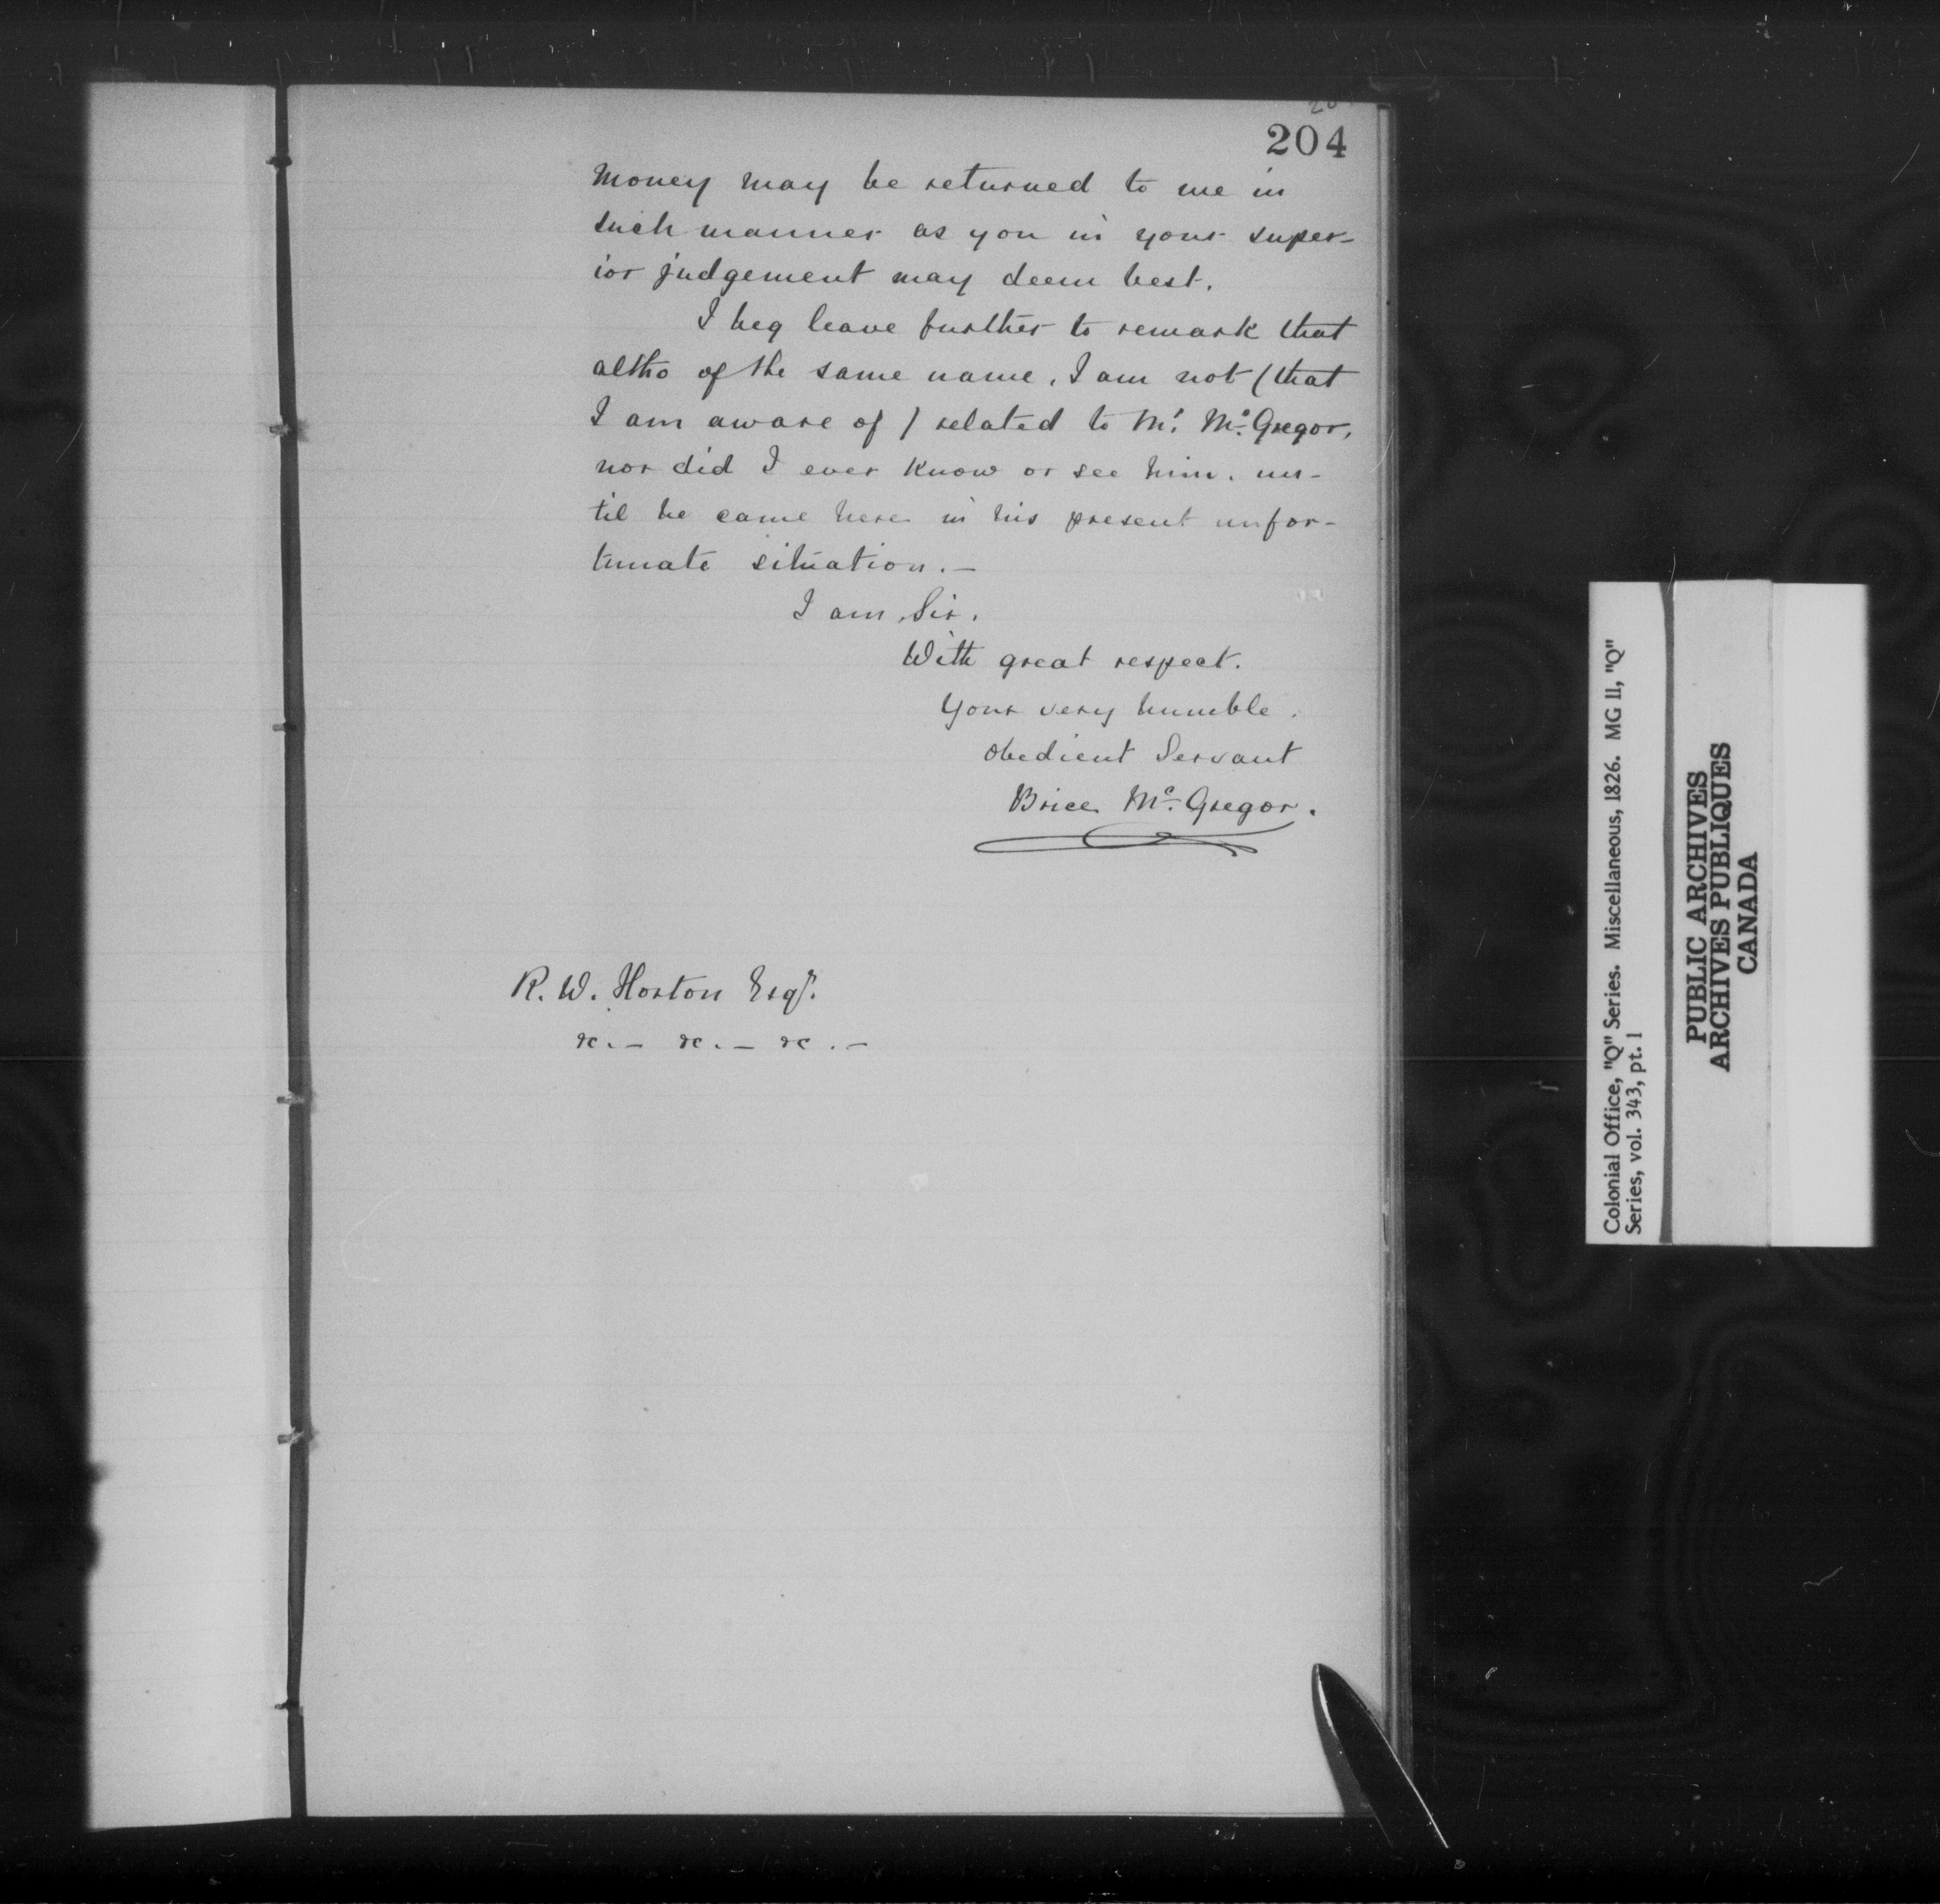 204
Money may be returned to me in
such manner as you in your super-
ior judgement may deem best.
I beg leave further to remark that
altho of the same name, I am not (that
I am aware of) related to Mr. Mc. Gregor,
nor did I ever know or see him, un-
til he came here in his present unfor-
tunate situation.—
I am, Sir,
With great respect.
Your very humble.
Obedient Servant
Brice Mc. Gregor.
R. W. Horton Esqr.
&c.— &c.— &c.—
Colonial Office, "Q" Series. Miscellaneous, 1826. MG 11, "Q"
Series, vol. 343, pt. 1
PUBLIC ARCHIVES
ARCHIVES PUBLIQUES
CANADA